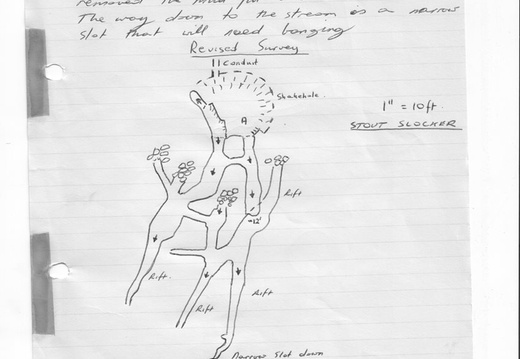 removed the mud
The way down to the stream is a narrow
slot that will need banging
Revised Survey
Conduit
Shakehole
A
1" = 10ft.
STOUT SLOCKER
Rift
-12'
Rift.
Rift
Rift
Narrow slot down